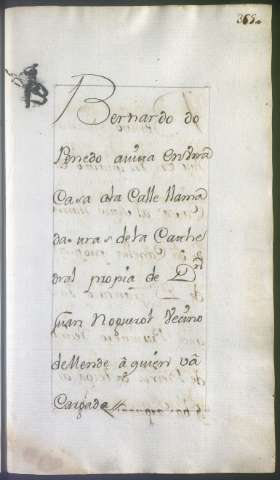 Bernardo do
Penedo avita en una
Casa ala Calle llama
da tras dela Cathe
dral propia de Dn
Juan Noguerol Vecino
de Mende à quien vâ
Cargada